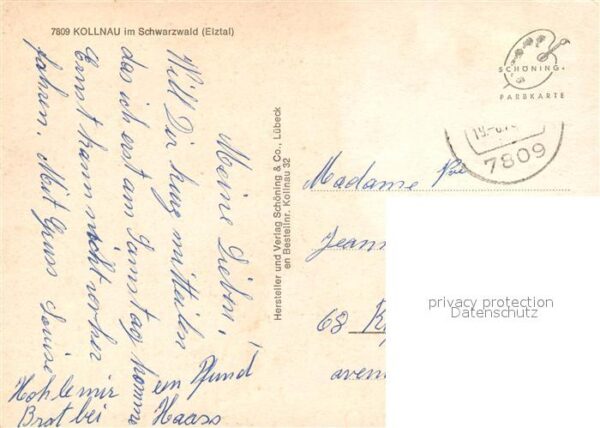 7809 KOLLNAU im Schwarzwald (Elztal)
Meine Lieben,
Will Dir kurz mitteilen
das ich erst am Samstag komme
Ernst kann nicht vorher
fahren. Mit Gruss Louise
Hohle mir ein Pfund
Brot bei Haass
Hersteller und Verlag Schöning & Co., Lübeck
en Bestellnr. Kollnau 32
SCHÖNING
FARBKARTE
19.-8.
7809
Madame
Jeann
68
aven
privacy protection
Datenschutz